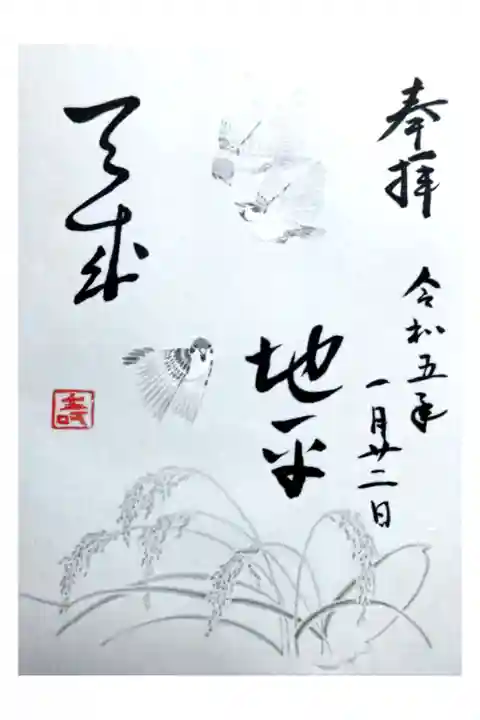 奉拝
令和五年
一月廿二日
地平
天成